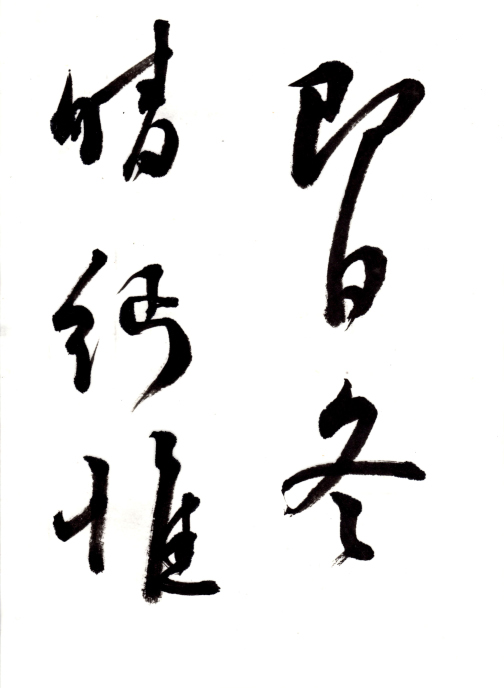 即日冬
晴緬惟